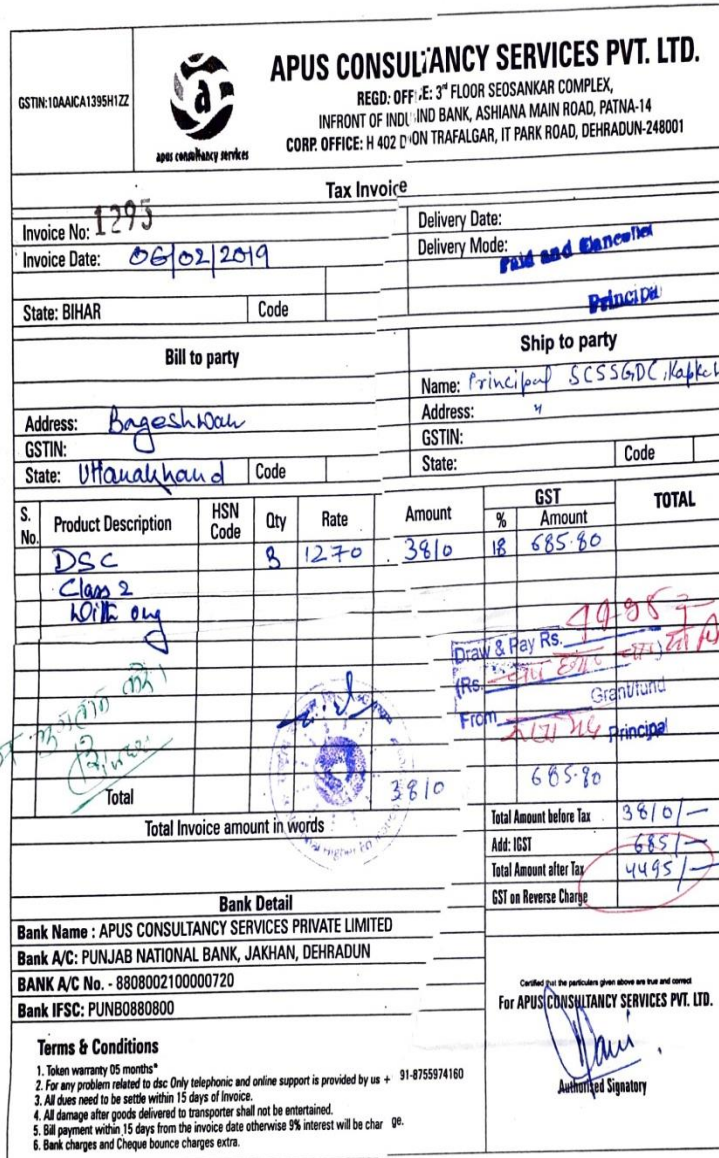 GSTIN:10AAICA1395H1ZZ
apus consultancy services
APUS CONSULTANCY SERVICES PVT. LTD.
REGD: OFF E: 3rd FLOOR SEOSANKAR COMPLEX,
INFRONT OF INDU IND BANK, ASHIANA MAIN ROAD, PATNA-14
CORP. OFFICE: H 402 D ON TRAFALGAR, IT PARK ROAD, DEHRADUN-248001
Tax Invoice
Invoice No: 1295
Invoice Date: 06/02/2019
State: BIHAR Code
Delivery Date:
Delivery Mode:
Paid and Cancelled
Principal
Bill to party
Address: Bageshwar
GSTIN:
State: Uttarakhand Code
Ship to party
Name: Principal SCSSGDC, Kapkot
Address: "
GSTIN:
State: Code
S. No. Product Description HSN Code Qty Rate Amount GST % Amount TOTAL
DSC 3 1270 3810 18 685.80
Class 2
With
Draw & Pay Rs.
(Rs.
Grant/fund
From
Principal
Total 3810 685.80
Total Invoice amount in words
Total Amount before Tax 3810/-
Add: IGST 685/-
Total Amount after Tax 4495/-
GST on Reverse Charge
Bank Detail
Bank Name : APUS CONSULTANCY SERVICES PRIVATE LIMITED
Bank A/C: PUNJAB NATIONAL BANK, JAKHAN, DEHRADUN
BANK A/C No. - 8808002100000720
Bank IFSC: PUNB0880800
Certified that the particulars given above are true and correct
For APUS CONSULTANCY SERVICES PVT. LTD.
Authorised Signatory
Terms & Conditions
1. Token warranty 05 months*
2. For any problem related to dsc Only telephonic and online support is provided by us + 91-8755974160
3. All dues need to be settle within 15 days of Invoice.
4. All damage after goods delivered to transporter shall not be entertained.
5. Bill payment within 15 days from the invoice date otherwise 9% interest will be char ge.
6. Bank charges and Cheque bounce charges extra.